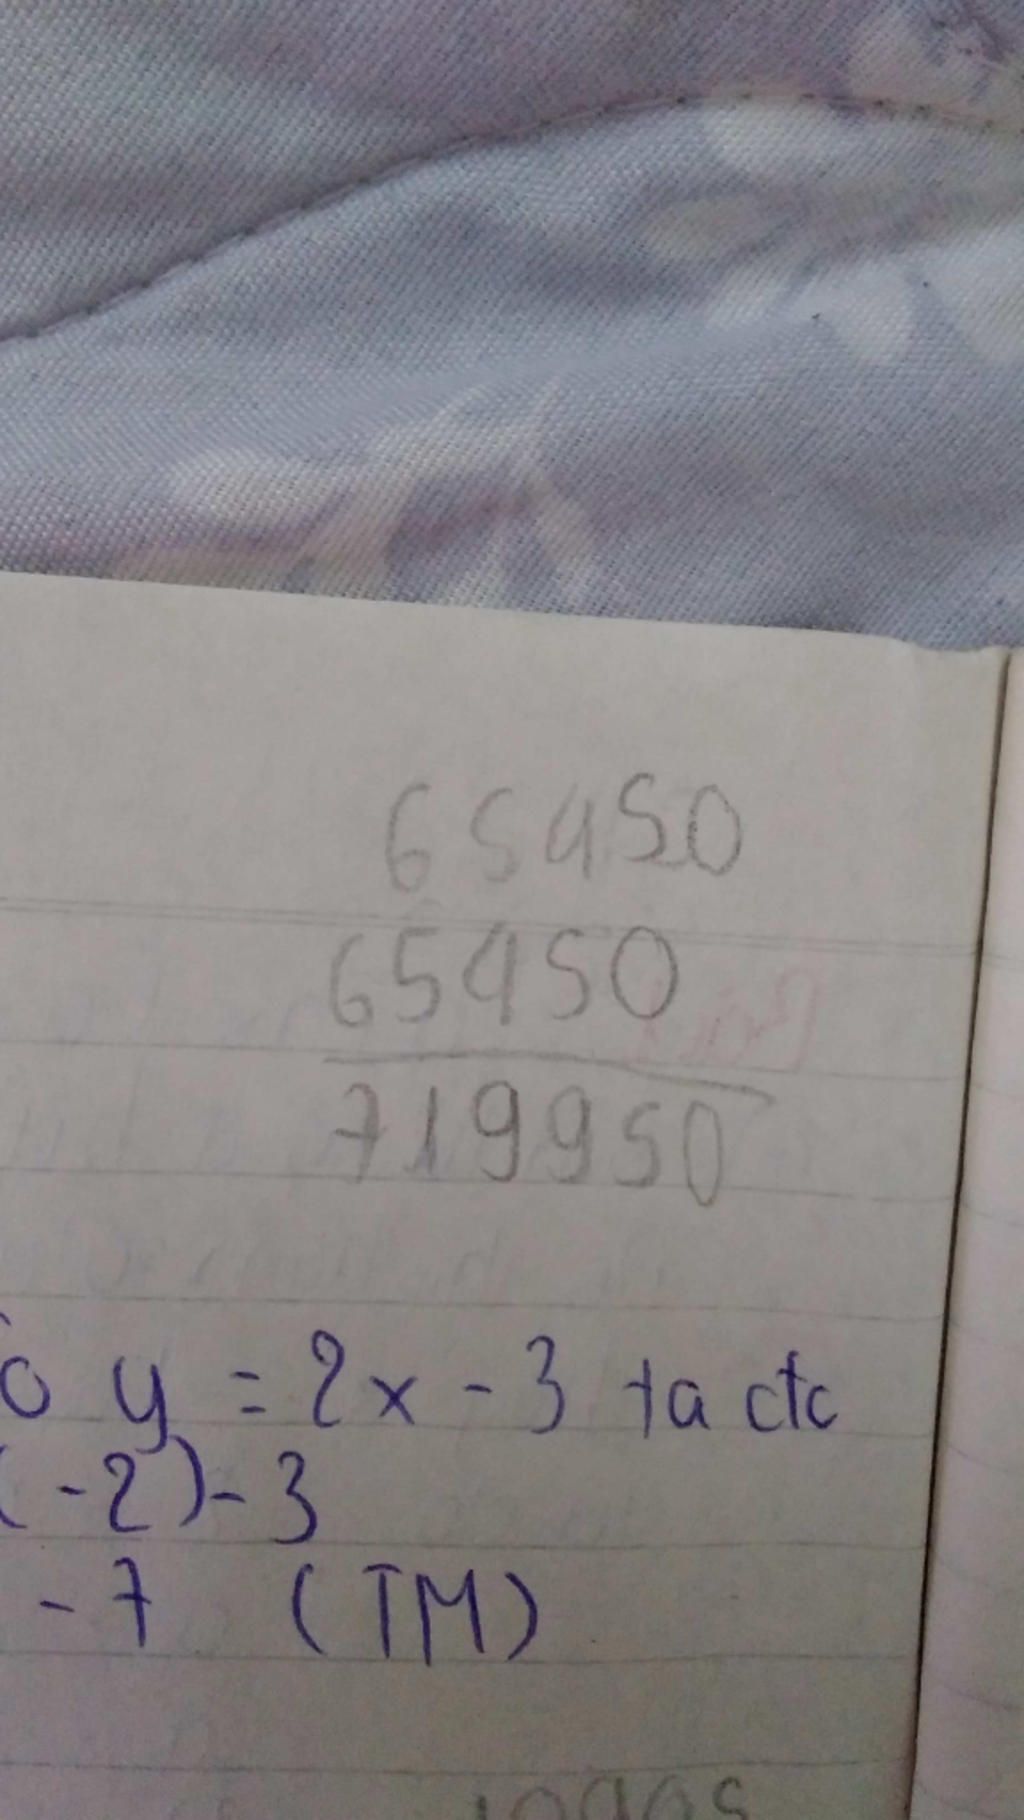 65450
65450
719950
y = 2x - 3 ta ctc
(-2) - 3
- 7 (TM)